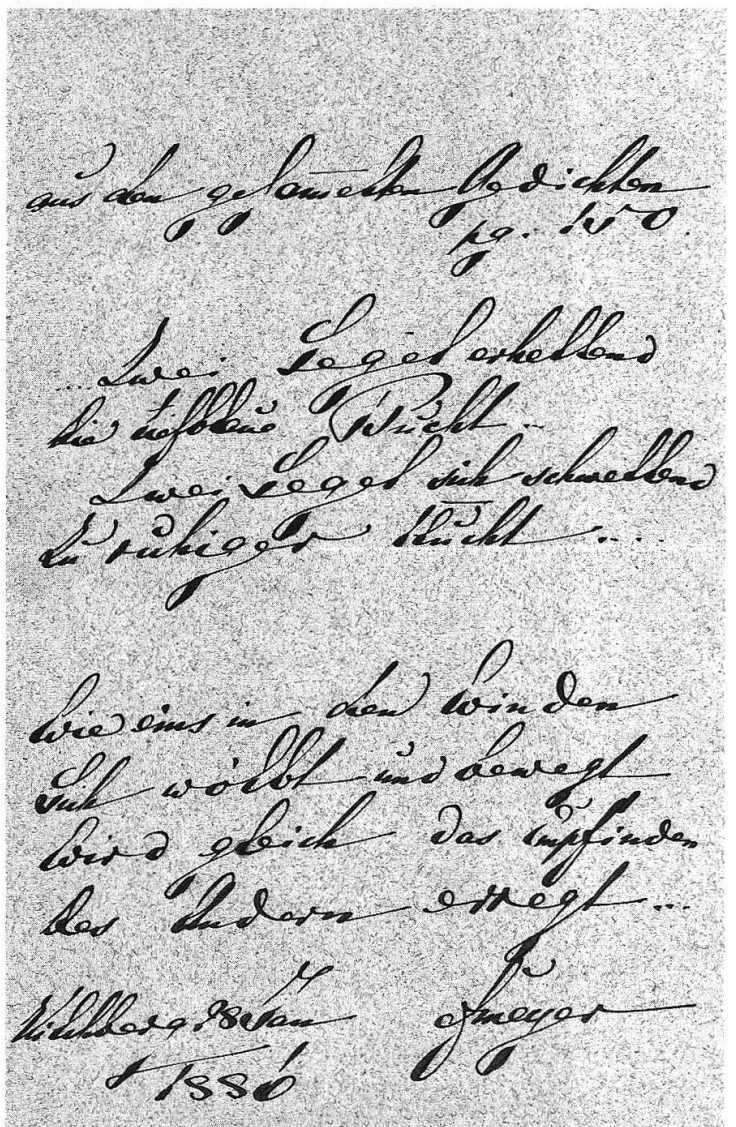 aus den gesam̄elten Gedichten
pg. 150.
.... Zwei Segel erhellend
die tiefblaue Bucht..
Zwei Segel sich schwellend
zu ruhiger Flucht ....
Wie eins in den Winden
sich wölbt und bewegt
Wird gleich das Empfinden
des Andern erregt...
Kilchberg 28 Jan
1886
cfmeyer